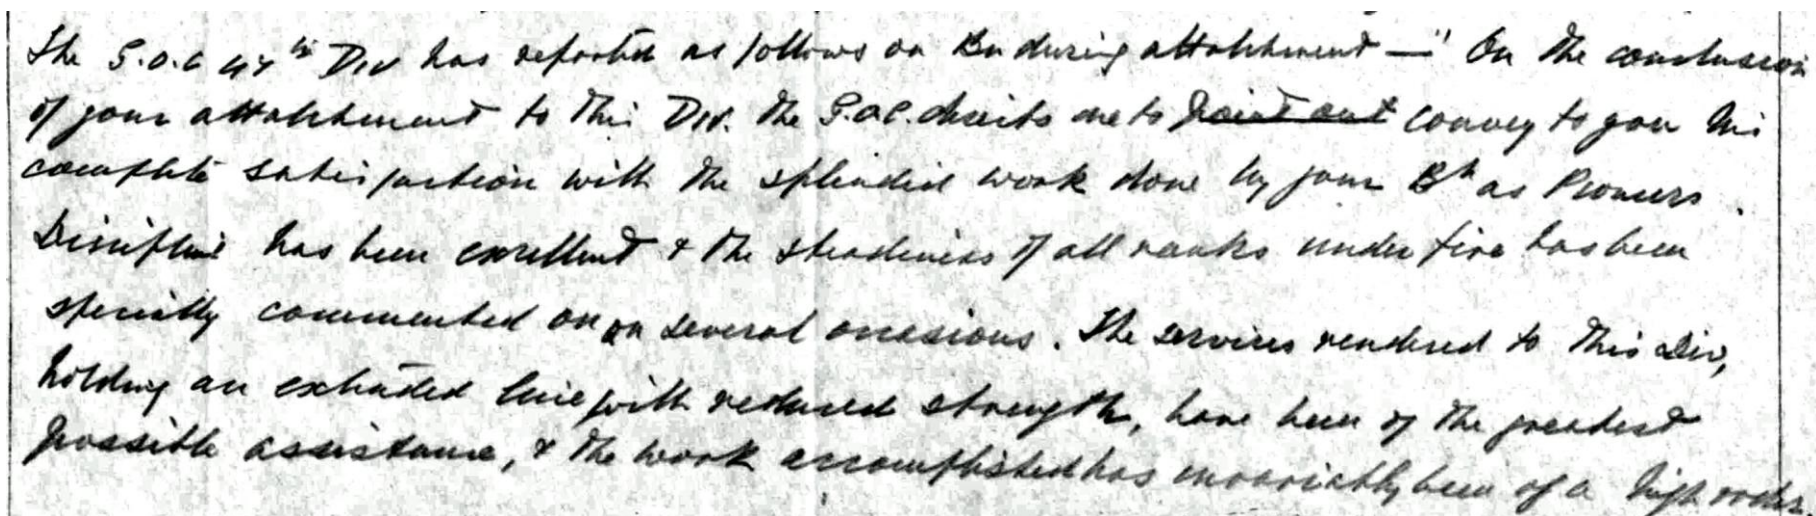 The G.O.C 47th Div has reported as follows on Bn during attatchment — " On the conclusion
of your attatchment to this Div. the G.O.C. desires me to point out convey to you his
complete satisfaction with the splendid work done by your Bn as Pioneers.
Discipline has been excellent & the steadiness of all ranks under fire has been
specially commented on on several occasions. The services rendered to this Div,
holding an extended line with reduced strength, have been of the greatest
possible assistance, & the work accomplished has invariably been of a high order.